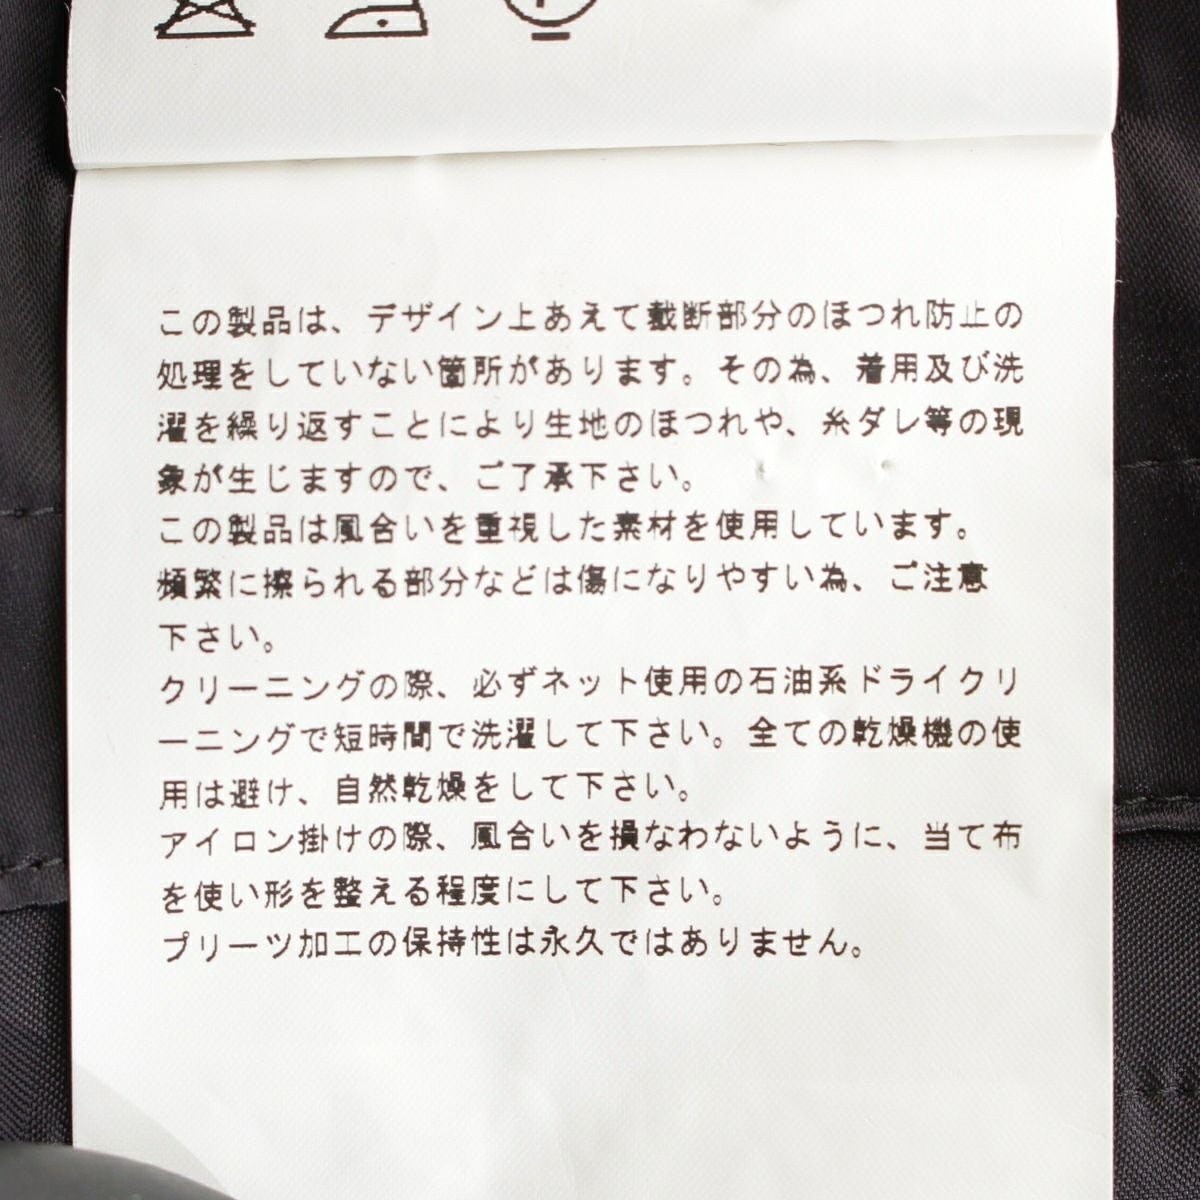 この製品は、デザイン上あえて裁断部分のほつれ防止の
処理をしていない箇所があります。その為、着用及び洗
濯を繰り返すことにより生地のほつれや、糸ダレ等の現
象が生じますので、ご了承下さい。
この製品は風合いを重視した素材を使用しています。
頻繁に擦られる部分などは傷になりやすい為、ご注意
下さい。
クリーニングの際、必ずネット使用の石油系ドライクリ
ーニングで短時間で洗濯して下さい。全ての乾燥機の使
用は避け、自然乾燥をして下さい。
アイロン掛けの際、風合いを損なわないように、当て布
を使い形を整える程度にして下さい。
プリーツ加工の保持性は永久ではありません。